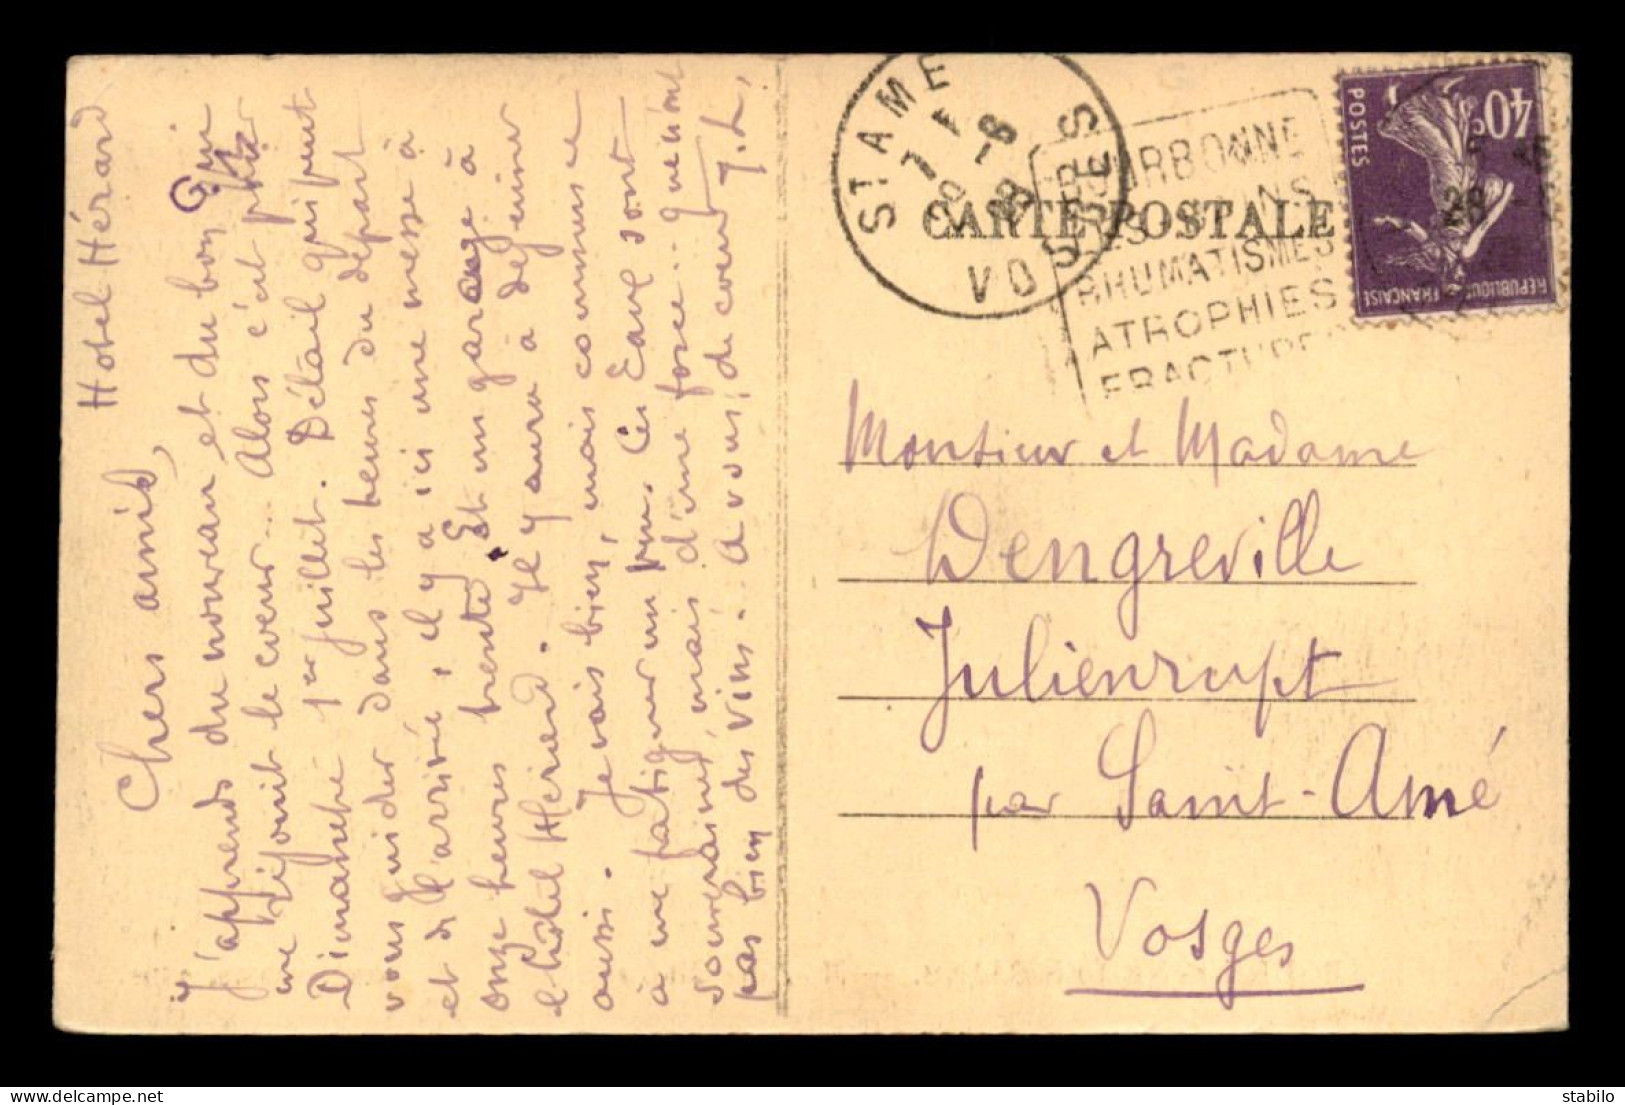 Hotel Hérard
Chers amis,
J'apprends du nouveau et du bon qui
me réjouit le coeur... Alors c'est pour
Dimanche 1er juillet. Détail qui peut
vous guider dans les heures du départ
et de l'arrivée, il y a ici une messe à
onze heures trente. Et un garage à
l'hôtel Hérard. Il y aura à dejeuner
aussi. Je vais bien, mais commence
à me fatiguer un peu. Ces Eaux sont
souveraines, mais d'une force... que n'ont
pas bien des vins. A vous, de coeur J. L.
ST AME
VOSGES
7 - 6
28
CARTE POSTALE
BOURBONNE
LES BAINS
RHUMATISMES
ATROPHIES
FRACTURES
POSTES
40c
REPUBLIQUE FRANÇAISE
28
Monsieur et Madame
Dengreville
Julienrupt
par Saint-Amé
Vosges
delcampe.net
stabilo